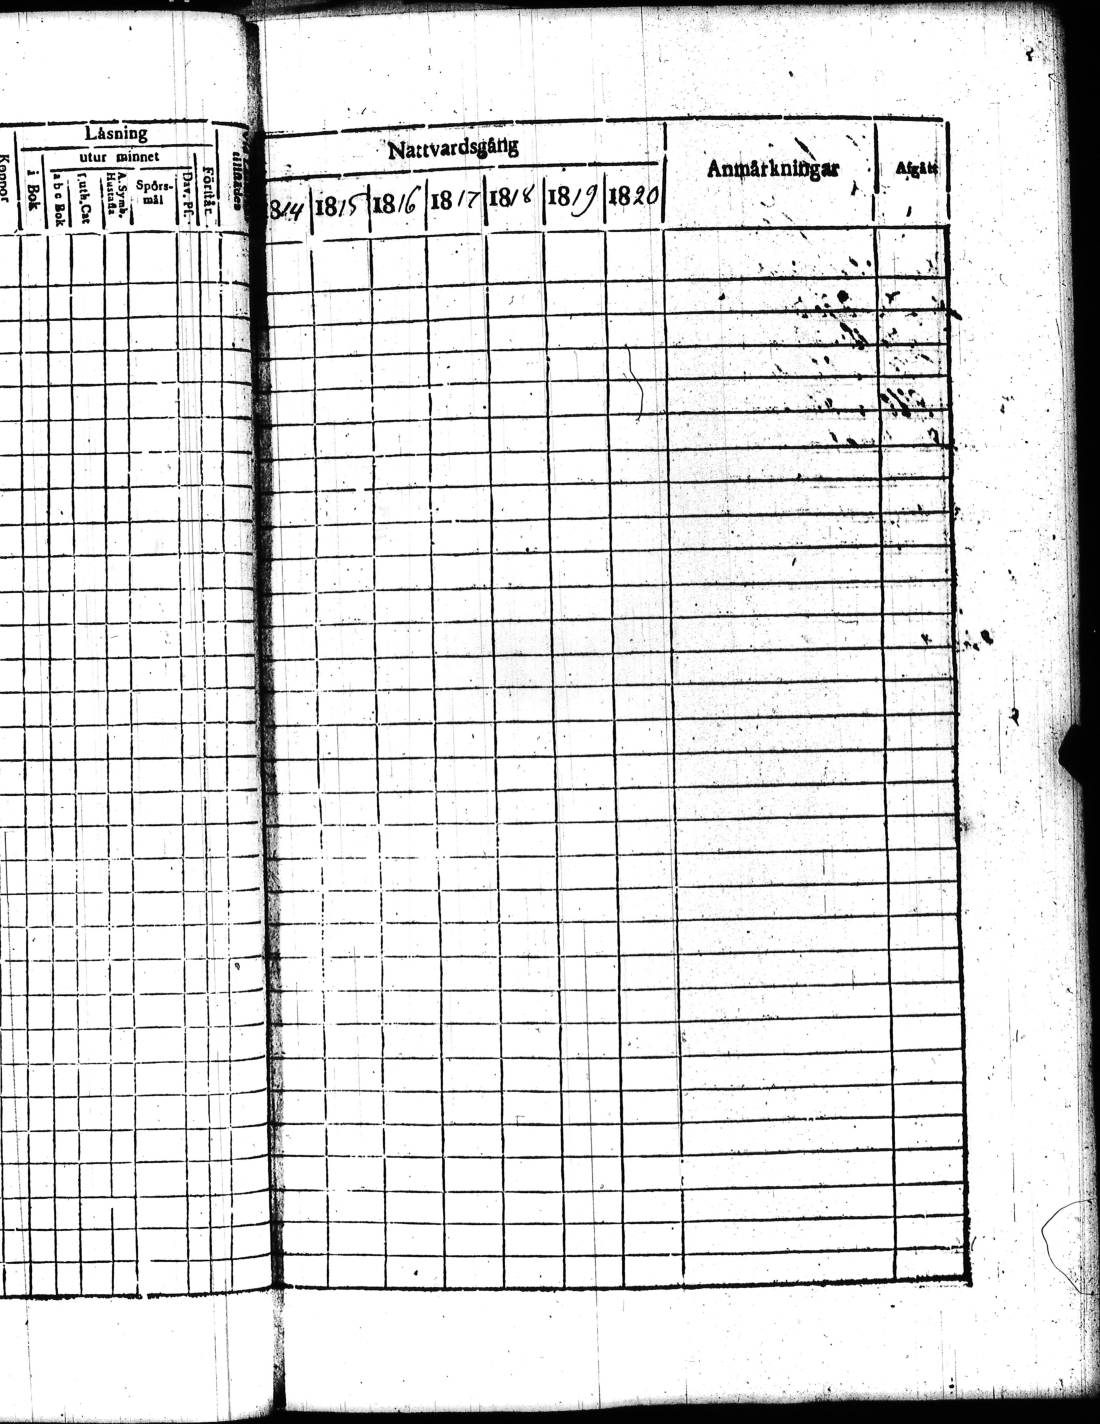 Koppor
Läsning
utur minnet
i Bok
a b c Bok
Luth, Cat
A. Symb. Hustafla
Spörs-
mål
Dav. Ps.
Förstår.
Nattvardsgång
1814 1815 1816 1817 1818 1819 1820
Anmärkningar
Afgått